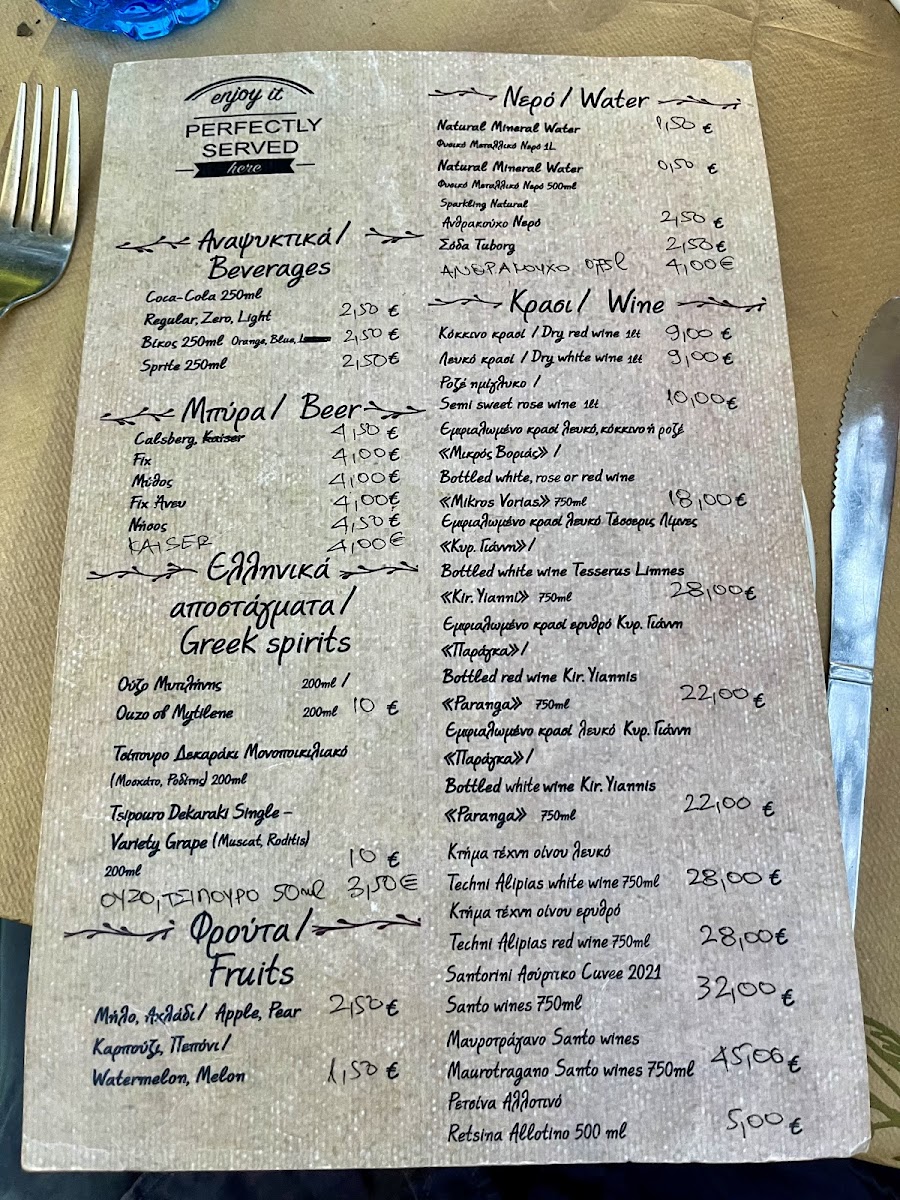 enjoy it
PERFECTLY
SERVED
here
Αναψυκτικά/
Beverages
Coca-Cola 250ml
Regular, Zero, Light 2,50 €
Βίκος 250ml Orange, Blue, 2,50 €
Sprite 250ml 2,50 €
Μπύρα/ Beer
Calsberg, Kaiser 4,50 €
Fix 4,00 €
Μύθος 4,00 €
Fix Άνευ 4,00 €
Νήσος 4,50 €
KAISER 4,00 €
Ελληνικά
αποστάγματα/
Greek spirits
Ούζο Μυτιλήνης 200ml /
Ouzo of Mytilene 200ml 10 €
Τσίπουρο Δεκαράκι Μονοποικιλιακό
(Μοσχάτο, Ροδίτης) 200ml
Tsipouro Dekaraki Single –
Variety Grape (Muscat, Roditis)
200ml 10 €
ΟΥΖΟ, ΤΣΙΠΟΥΡΟ 50ml 3,50 €
Φρούτα/
Fruits
Μήλο, Αχλάδι/ Apple, Pear 2,50 €
Καρπούζι, Πεπόνι/
Watermelon, Melon 1,50 €
Νερό / Water
Natural Mineral Water 1,50 €
Φυσικό Μεταλλικό Νερό 1L
Natural Mineral Water 0,50 €
Φυσικό Μεταλλικό Νερό 500ml
Sparkling Natural
Ανθρακούχο Νερό 2,50 €
Σόδα Tuborg 2,50 €
ΑΝΘΡΑΚΟΥΧΟ 0,75l 4,00 €
Κρασι/ Wine
Κόκκινο κρασί / Dry red wine 1lt 9,00 €
Λευκό κρασί / Dry white wine 1lt 9,00 €
Ροζέ ημίγλυκο /
Semi sweet rose wine 1lt 10,00 €
Εμφιαλωμένο κρασί λευκό, κόκκινο ή ροζέ
«Μικρός Βοριάς» /
Bottled white, rose or red wine
«Mikros Vorias» 750ml 18,00 €
Εμφιαλωμένο κρασί λευκό Τέσσερις Λίμνες
«Κυρ. Γιάννη»/
Bottled white wine Tesserus Limnes
«Kir. Yianni» 750ml 28,00 €
Εμφιαλωμένο κρασί ερυθρό Κυρ. Γιάννη
«Παράγκα»/
Bottled red wine Kir. Yiannis
«Paranga» 750ml 22,00 €
Εμφιαλωμένο κρασί λευκό Κυρ. Γιάννη
«Παράγκα»/
Bottled white wine Kir. Yiannis
«Paranga» 750ml 22,00 €
Κτήμα τέχνη οίνου λευκό
Techni Alipias white wine 750ml 28,00 €
Κτήμα τέχνη οίνου ερυθρό
Techni Alipias red wine 750ml 28,00 €
Santorini Ασύρτικο Cuvee 2021
Santo wines 750ml 32,00 €
Μαυροτράγανο Santo wines
Maurotragano Santo wines 750ml 45,00 €
Ρετσίνα Αλλοτινό
Retsina Allotino 500 ml 5,00 €